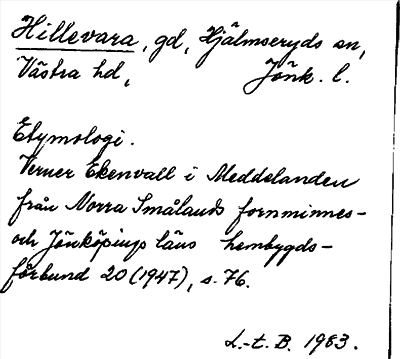 Hillevara, gd, Hjälmseryds sn,
Västra hd, Jönk. l.
Etymologi.
Verner Ekenvall i Meddelanden
från Norra Smålands fornminnes-
och Jönköpings läns hembygds-
förbund 20 (1947), s. 76.
L.-t. B. 1983.